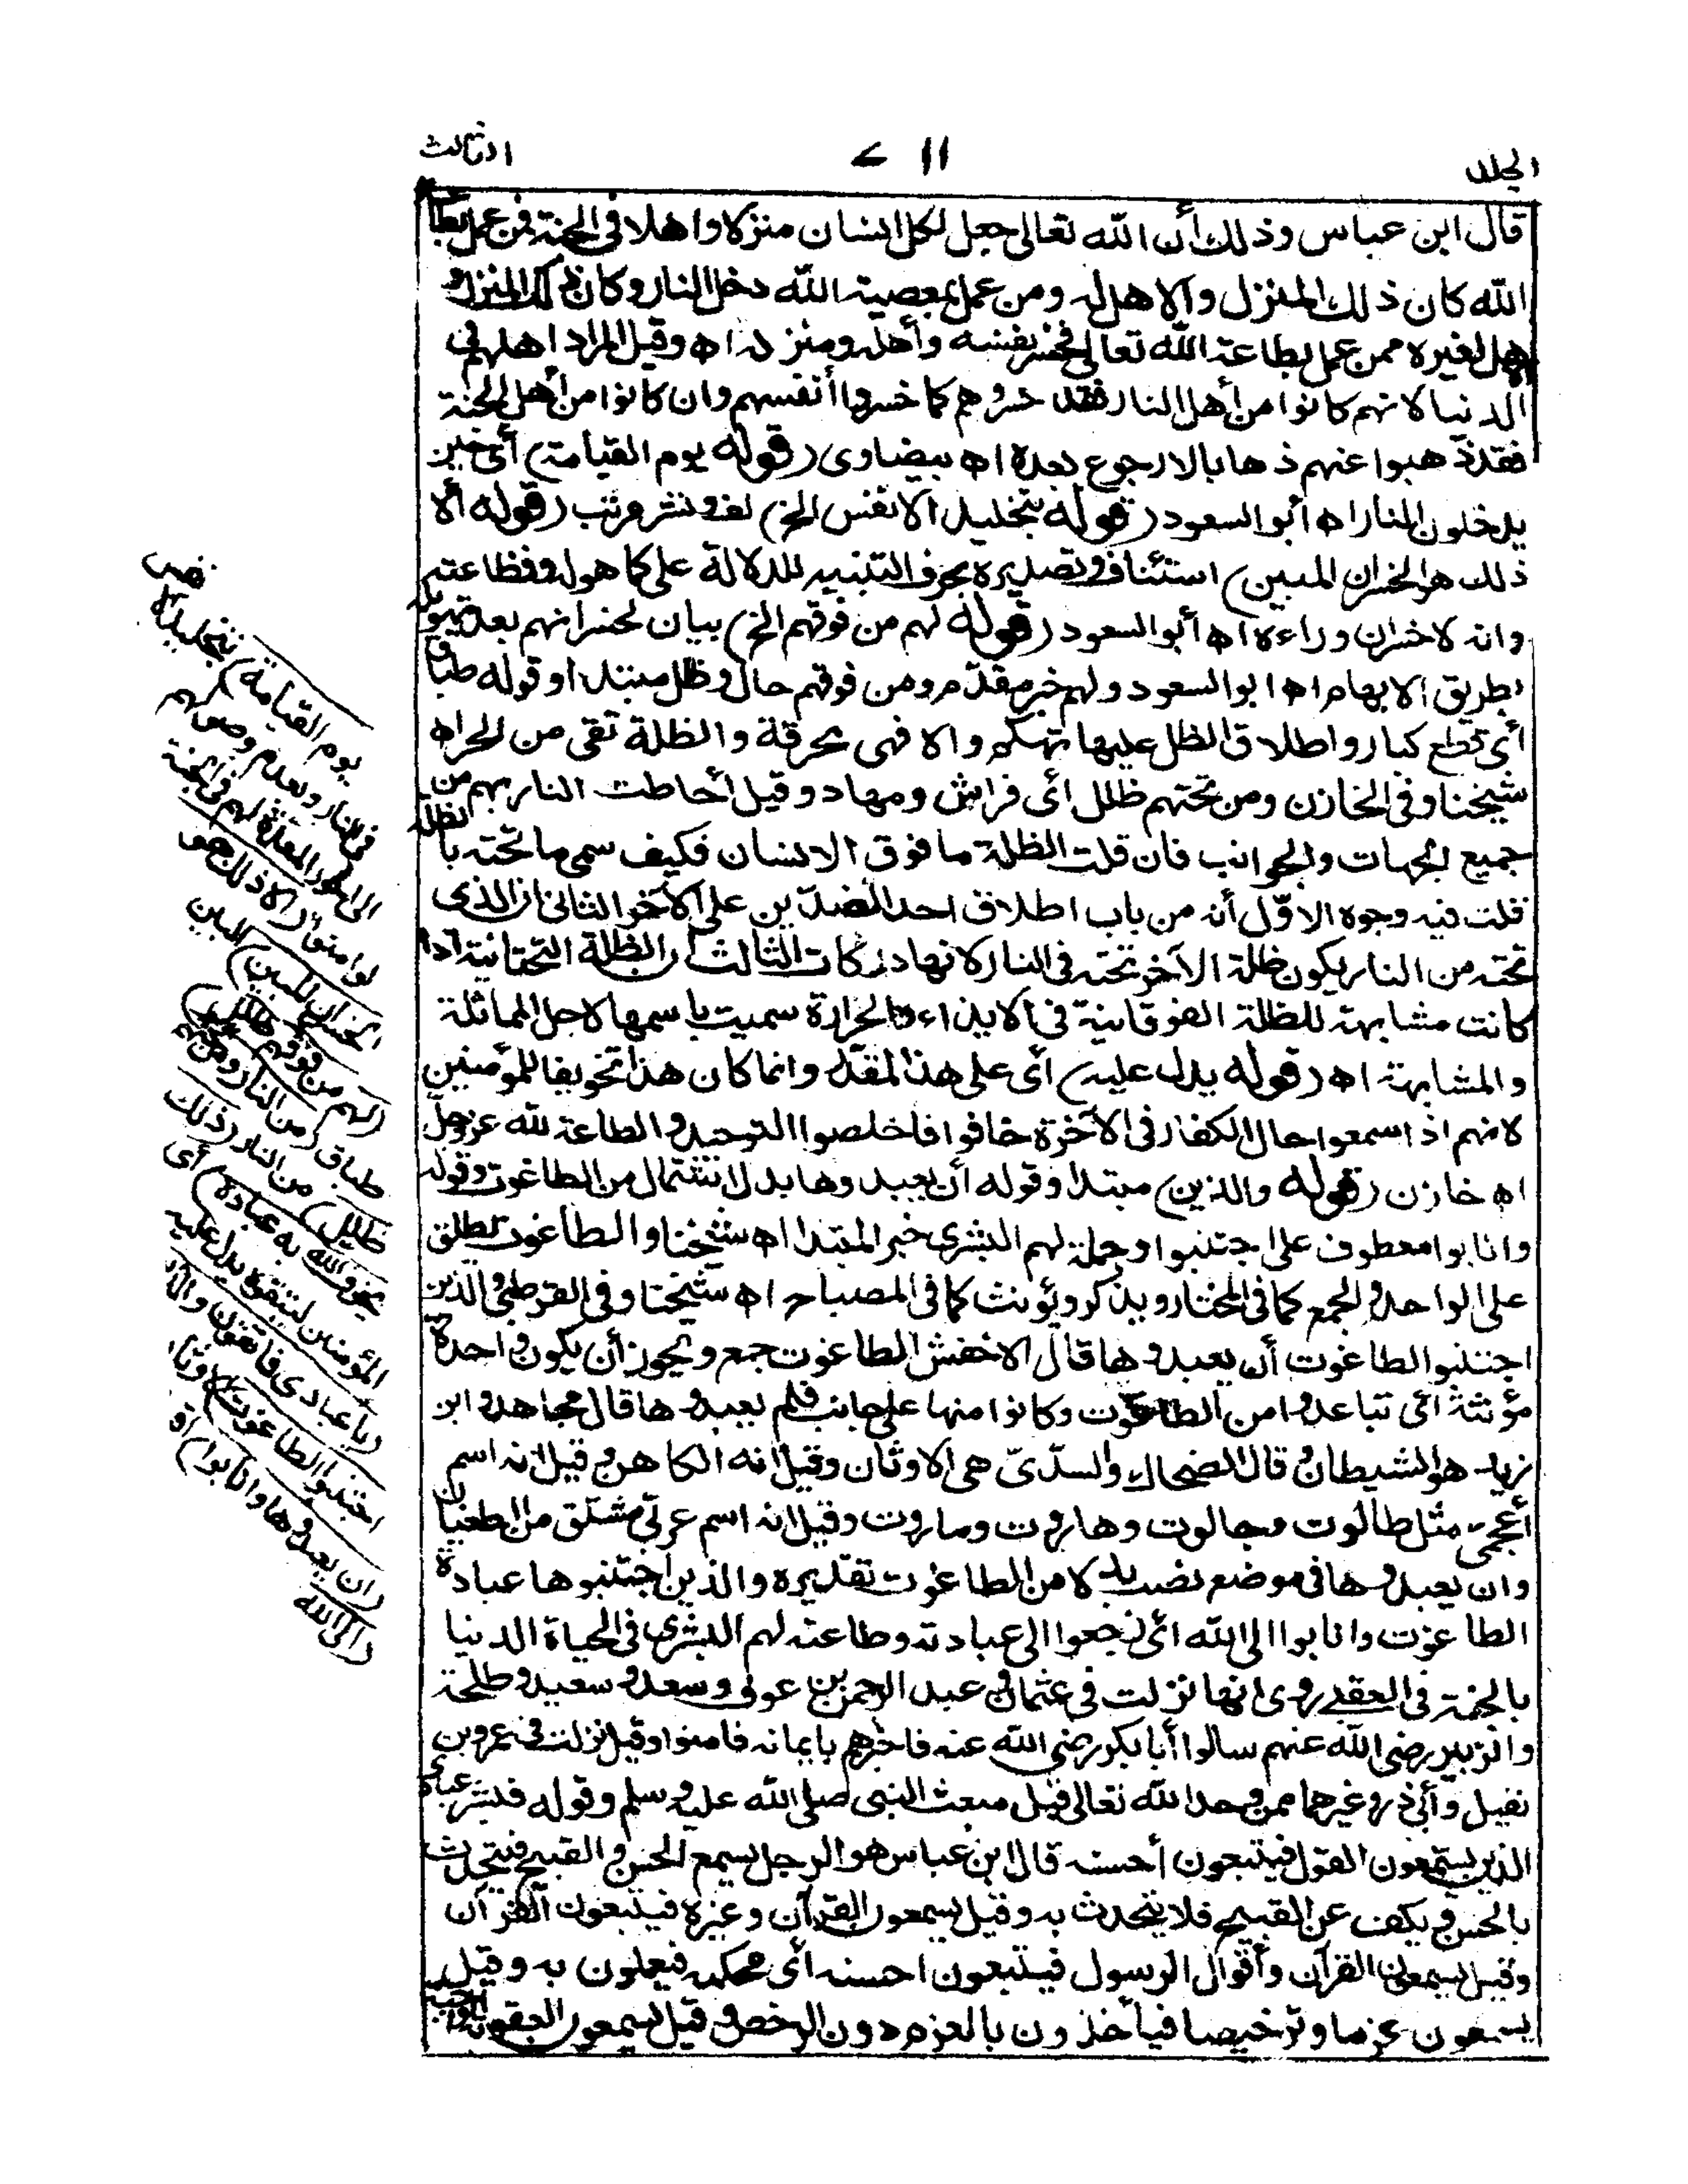 المجلد ١١ ٧ الثالث
قال ابن عباس وذلك أن الله تعالى جعل لكل انسان منزلا واهلا فى الجنة فمن عمل بطاعة
الله كان ذلك المنزل والاهل له ومن عمل بمعصية الله دخل النار وكان ذلك المنزل و
الاهل لغيره ممن عمل بطاعة الله تعالى فخسر نفسه وأهله ومنزله اه وقيل المراد اهلهم فى
الدنيا لانهم كانوا من أهل النار فقد خسروهم كما خسروا أنفسهم وان كانوا من أهل الجنة
فقد ذهبوا عنهم ذهابا لا رجوع بعده اه بيضاوى (قوله يوم القيامة) أى حين
يدخلون النار اه أبو السعود (قوله بتخليد الانفس الخ) لف ونشر مرتب (قوله ألا
ذلك هو الخسران المبين) استئناف وتصديره بحرف التنبيه للدلالة على كما هوله وفظاعته
وانه لا خسران وراءه اه أبو السعود (قوله لهم من فوقهم الخ) بيان لخسرانهم بعد تهويله
بطريق الابهام اه ابو السعود ولهم خبر مقدّم ومن فوقهم حال وظلل مبتدا وقوله طباق
أى قطع كبار واطلاق الظلل عليها تهكم والا فهى محرقة والظلة تقى من الحر اه
شيخنا وفى الخازن ومن تحتهم ظلل أى فراش ومهاد وقيل أحاطت النار بهم من
جميع الجهات والجوانب فان قلت الظلة ما فوق الانسان فكيف سمى ما تحته بالظلة
قلت فيه وجوه الاوّل أنه من باب اطلاق احد الضدّين على الآخر الثانى ان الذى
تحته من النار يكون ظلة الآخر تحته فى النار لانها دركات الثالث ان الظلة التحتانية اذا
كانت مشابهة للظلة الفوقانية فى الايذاء والحرارة سميت باسمها لاجل المماثلة
والمشابهة اه (قوله يدل عليه) أى على هذا المقدّر وانما كان هذا تخويفا للمؤمنين
لانهم اذا سمعوا حال الكفار فى الآخرة خافوا فاخلصوا التوحيد والطاعة لله عز وجل
اه خازن (قوله والذين) مبتدا وقوله أن يعبدوها بدل اشتمال من الطاغوت وقوله
وانابوا معطوف على اجتنبوا وجملة لهم البشرى خبر المبتدا اه شيخنا والطاغوت تطلق
على الواحد والجمع كما فى المختار ويذكر ويؤنث كما فى المصباح اه شيخنا وفى القرطبى والذين
اجتنبوا الطاغوت أن يعبدوها قال الاخفش الطاغوت جمع ويجوز أن يكون واحدة
مؤنثة أى تباعدوا من الطاغوت وكانوا منها على جانب فلم يعبدوها قال مجاهد وابن
زيد هو الشيطان وقال الضحاك والسدّىّ هى الاوثان وقيل انه الكاهن وقيل انه اسم
أعجمى مثل طالوت وجالوت وهاروت وماروت وقيل انه اسم عربى مشتق من الطغيان
وان يعبدوها فى موضع نصب بدلا من الطاغوت تقديره والذين اجتنبوها عبادة
الطاغوت وانابوا الى الله أى رجعوا الى عبادته وطاعته لهم البشرى فى الحياة الدنيا
بالجنة فى العقبى روى انها نزلت فى عثمان وعبد الرحمن بن عوف وسعد وسعيد وطلحة
والزبير رضى الله عنهم سالوا أبا بكر رضى الله عنه فاخبرهم بايمانه فامنوا وقيل نزلت فى عمرو بن
نفيل وأبى ذر وغيرهما ممن وحد الله تعالى قبل مبعث النبى صلى الله عليه وسلم وقوله فبشر عبادى
الذين يستمعون القول فيتبعون أحسنه قال ابن عباس هو الرجل يسمع الحسن والقبيح فيتحدث
بالحسن ويكف عن القبيح فلا يتحدث به وقيل يسمعون القرآن وغيره فيتبعون القرآن
وقيل يسمعون القرآن وأقوال الرسول فيتبعون احسنه أى محكمه فيعملون به وقيل
يسمعون عزما وترخيصا فيأخذون بالعزم دون الرخص وقيل يسمعون العقوبة
يوم القيامة) بتخليد
فى النار وبعدم وصولهم
الى الحور المعدّة لهم فى الجنة
لو امنوا (ألا ذلك هو
الخسران المبين) البين
(لهم من فوقهم ظلل)
طباق (من النار ومن
ظلل) من النار (ذلك
يخوف الله به عباده) أى
المؤمنين ليتقوه يدل عليه
(يا عباد فاتقون والذين
اجتنبوا الطاغوت) الاوثان
(ان يعبدوها وانابوا) اق
(الى الله